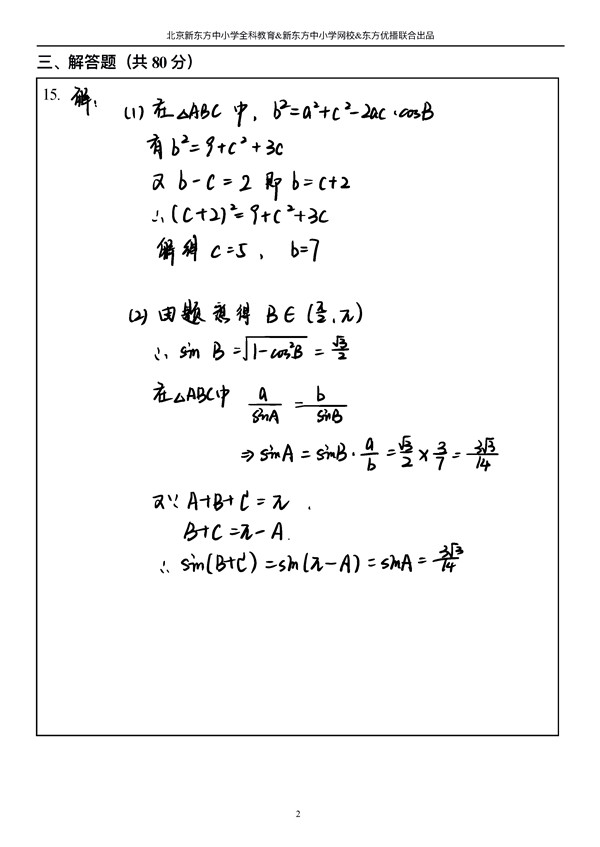 北京新东方中小学全科教育&新东方中小学网校&东方优播联合出品
三、解答题（共 80 分）
15. 解：
(1) 在△ABC 中，b²=a²+c²-2ac·cosB
有 b²=9+c²+3c
又 b-c=2 即 b=c+2
∴(c+2)²=9+c²+3c
解得 c=5，b=7
(2) 由题意得 B∈(π/2,π)
∴ sin B=√(1-cos²B)=√3/2
在△ABC中 a/sinA = b/sinB
⇒ sinA = sinB·a/b = √3/2 × 3/7 = 3√3/14
又∵ A+B+C=π，
B+C=π-A.
∴ sin(B+C)=sin(π-A)=sinA=3√3/14
2